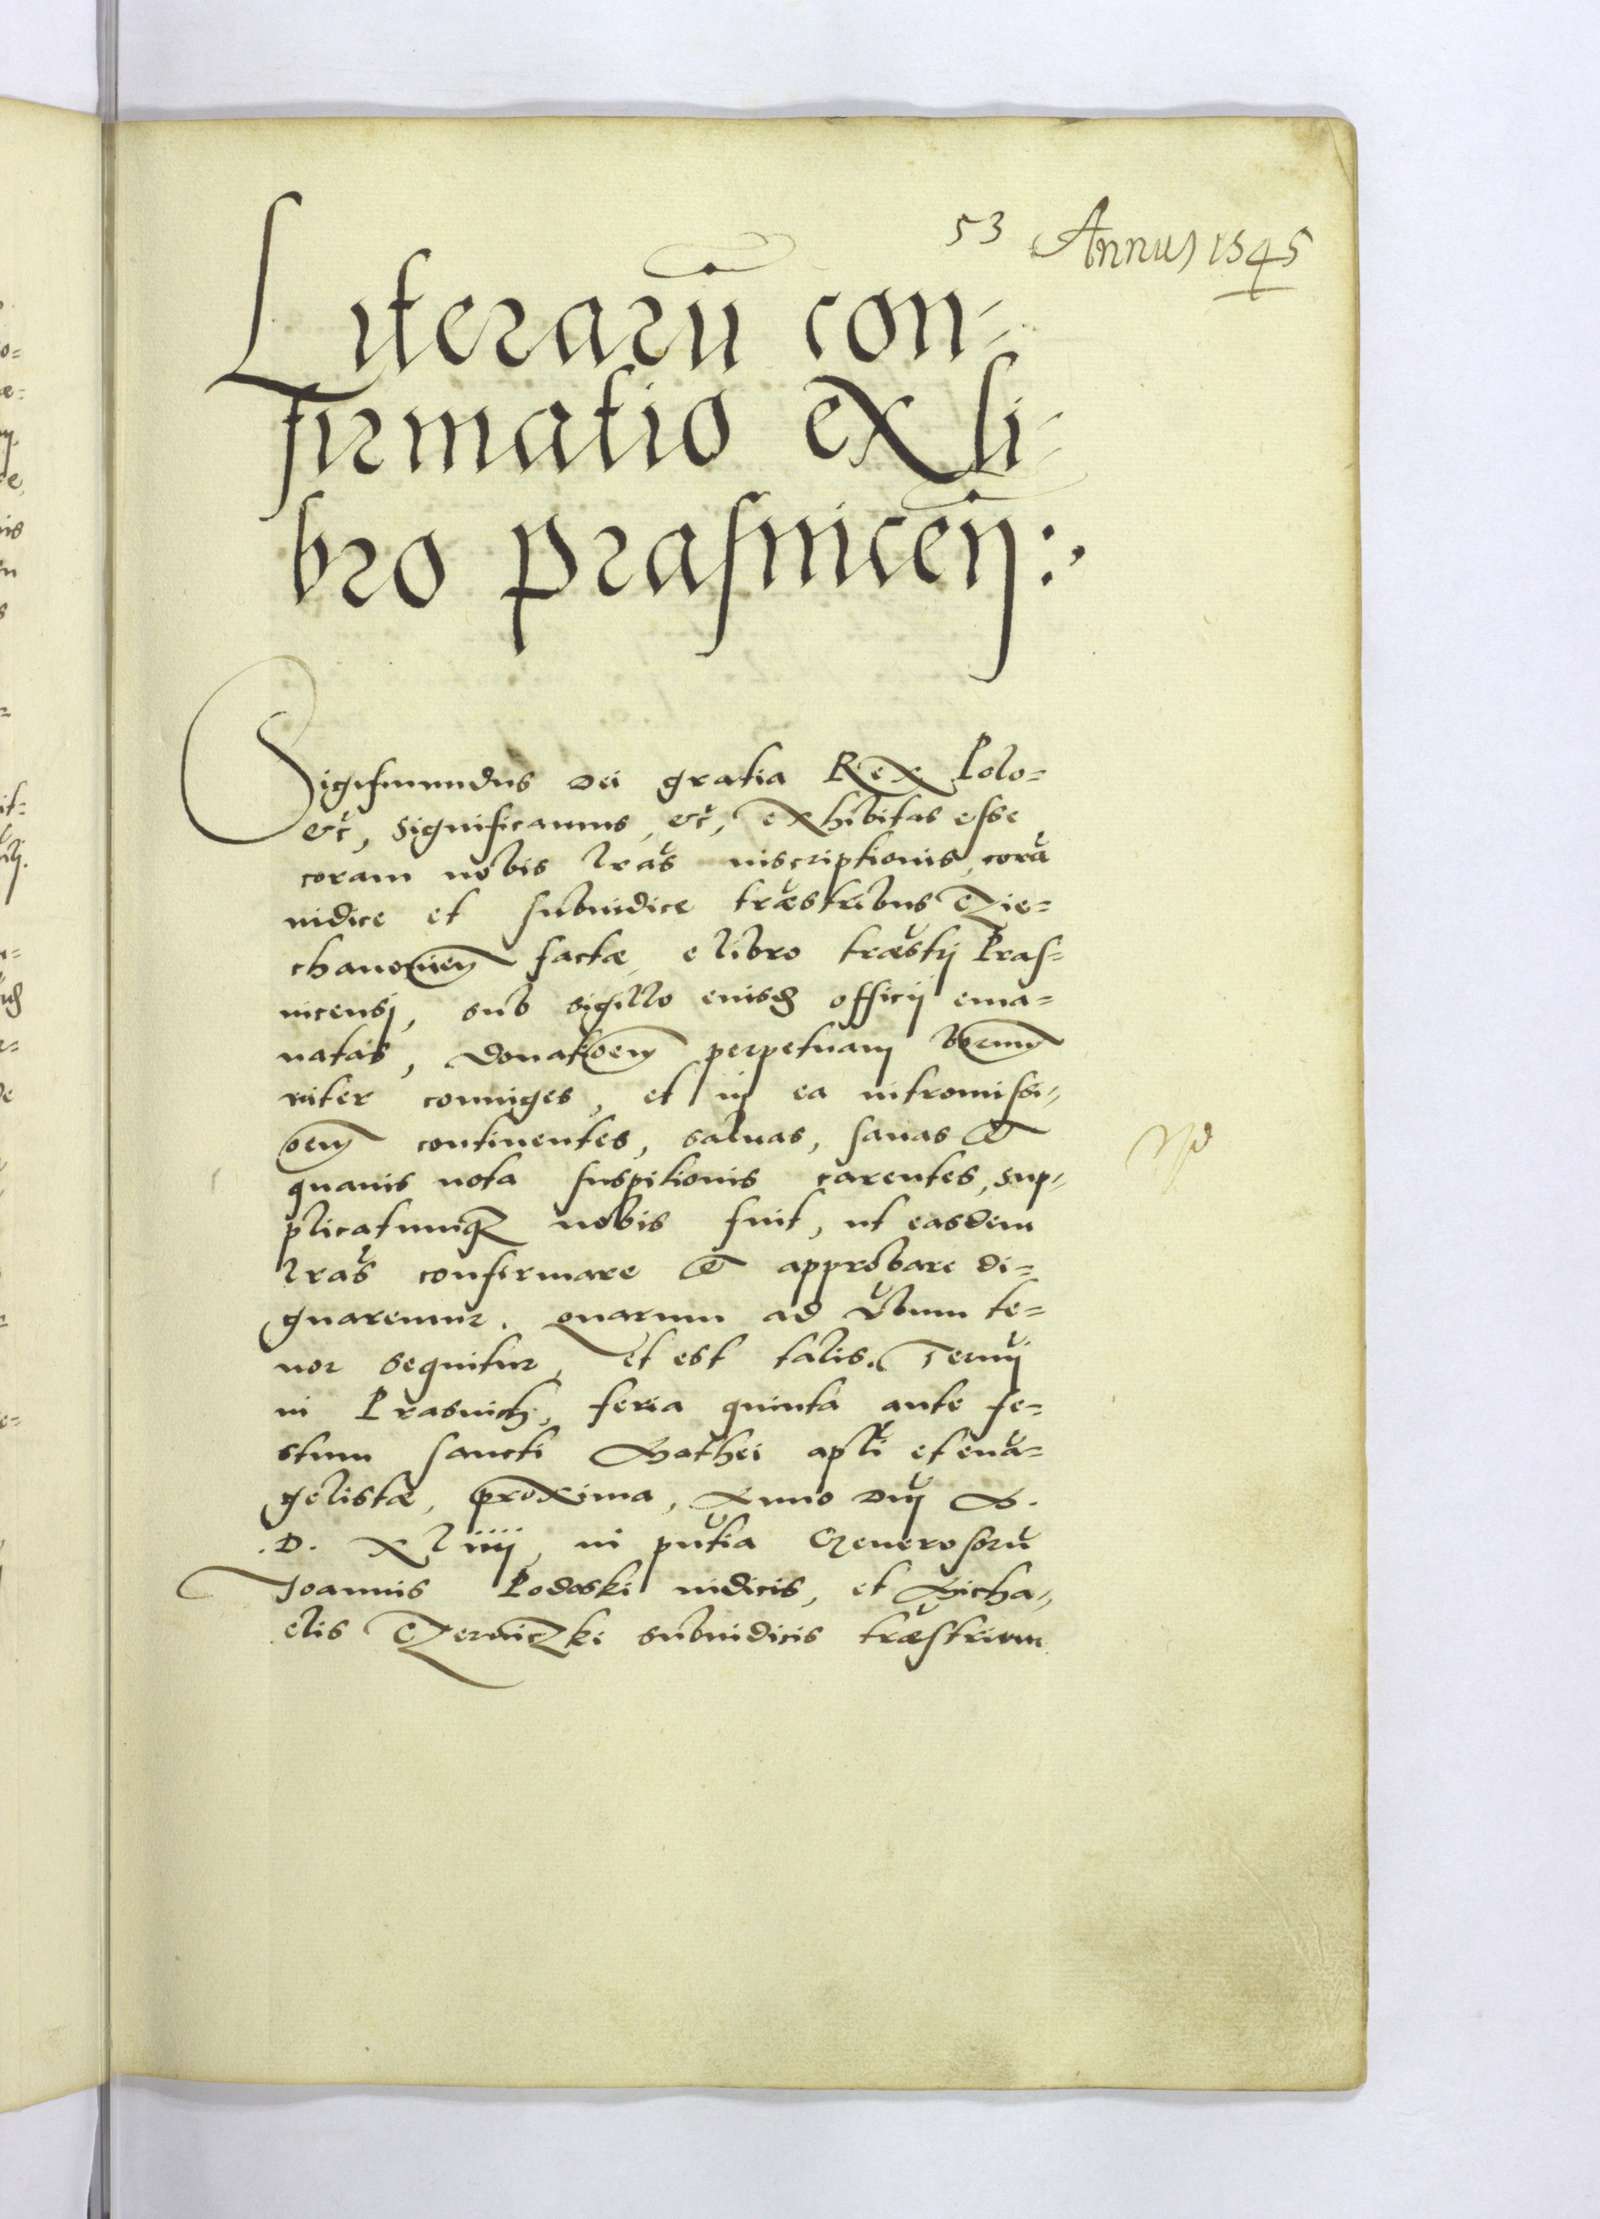 53 Annus 1545
Literarū con-
firmatio ex li-
bro prasnicen̄:
Sigismundus Dei gratia Rex Polo=
&c, significamus, &c, exhibitas esse
coram nobis lras inscriptionis, corā
iudice et subiudice træstribus Czie=
chanovien̄ factæ, e libro træstri Pras=
nicensi, sub sigillo eiusd officii ema=
natas, donatōem perpetuam bonorum
inter coniuges, et in ea intromissi-
ōem continentes, saluas, sanas &
quauis nota suspitionis carentes, sup-
plicatumq nobis fuit, ut easdem
lras confirmare & approbare di=
gnaremur. quarum ad vbum te=
nor sequitur, et est talis. Termi
in Prasnich, feria quinta ante fe=
stum sancti Mathei apli et euā=
gelistæ, proxima, Anno Dni M.
.D. Xliiii, in pñtia Generosorū
Joannis Podoski iudicis, et Micha-
elis Czerniczki subiudicis træstrium